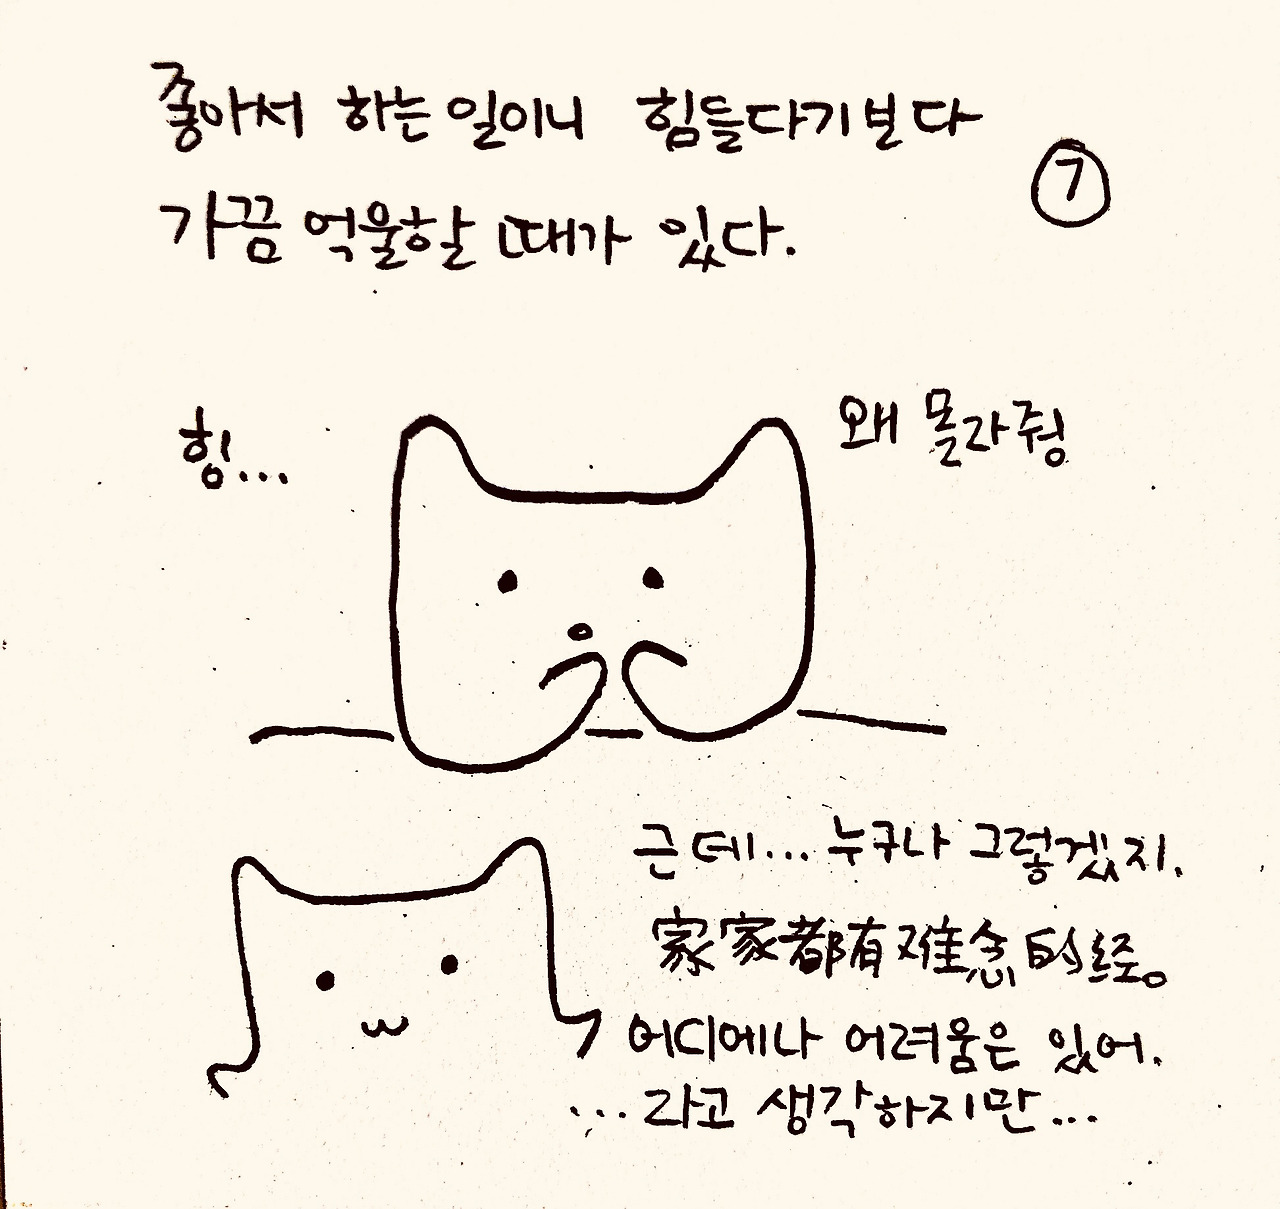 좋아서 하는 일이니 힘들다기 보다
⑦
가끔 억울할 때가 있다.
힝...
왜 몰라줭
근데... 누구나 그렇겠지.
家家都有难念的经。
어디에나 어려움은 있어.
...라고 생각하지만...